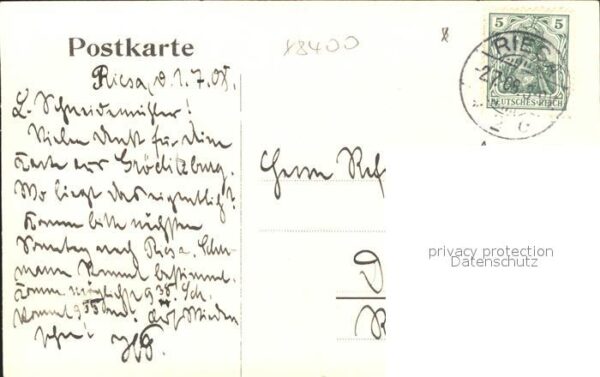 Postkarte
18400
Riesa, d. 1.7.08.
L. Schneidemühler!
Vielen Dank für deine
Karte aus Gröditzburg.
Wo liegt das eigentlich?
Komm bitte nächsten
Sonntag nach Riesa. Schu-
mann kommt bestimmt.
Komm möglichst 9 38. Sch.
kommt 9 55 an. Auf Wieder
sehn!
5 5
RIES
-2.7.08
DEUTSCHES REICH
Herrn Ref
D
R
privacy protection
Datenschutz